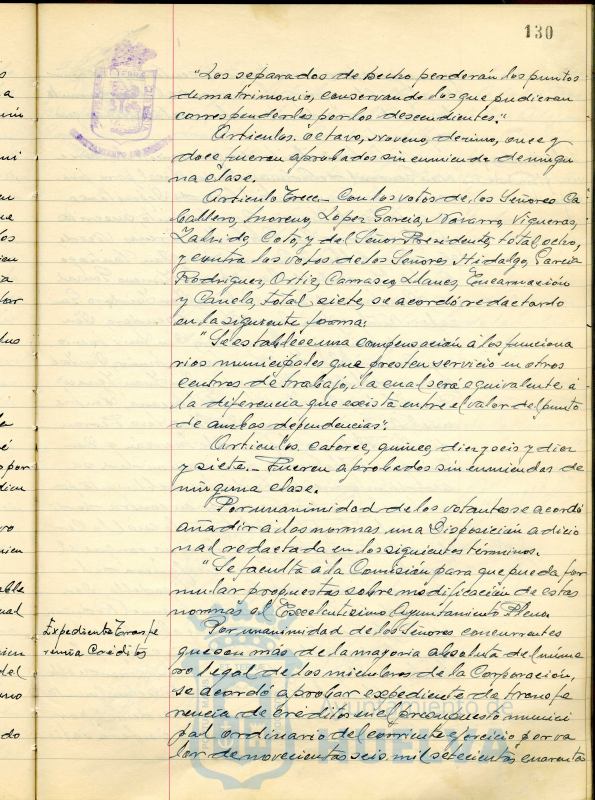 130
"Los separados de hecho perderán los puntos
de matrimonio, conservando los que pudieran
corresponderles por los descendientes."
Articulos. octavo, noveno, decimo, once y
doce fueron aprobados sin enmienda de ningu
na clase.
Articulo Trece.- Con los votos de los Señores Ca-
ballero, Moreno, López García, Navarro, Vigueras,
Zalvide, Coto, y del Señor Presidente, total ocho,
y contra los votos de los Señores Hidalgo, García
Rodriguez, Ortiz, Carrasco, Llanes, Encarnación
y Canela, total siete, se acordó redactarlo
en la siguiente forma:
"Se establece una compensación á los funciona
rios municipales que presten servicio en otros
centros de trabajo, la cual será equivalente á
la diferencia que exista entre el valor del punto
de ambas dependencias".
Articulos. catorce, quince, diez y seis y diez
y siete.- Fueron aprobados sin enmiendas de
ninguna clase.
Por unanimidad de los votantes se acordó
añadir á las normas una Disposición adicio
nal redactada en los siguientes términos.
"Se faculta á la Comisión para que pueda for
mular propuestas sobre modificación de estas
normas al Excelentisimo Ayuntamiento Pleno.
Expediente Transfe
rencia Créditos
Por unanimidad de los Señores concurrentes
que son más de la mayoria absoluta del núme
ro legal de los miembros de la Corporación,
se acordó aprobar expediente de transfe
rencia de Créditos en el presupuesto munici
pal ordinario del corriente ejercicio por va
lor de novecientas seis mil setecientas cuarenta
Ayuntamiento de
HUELVA